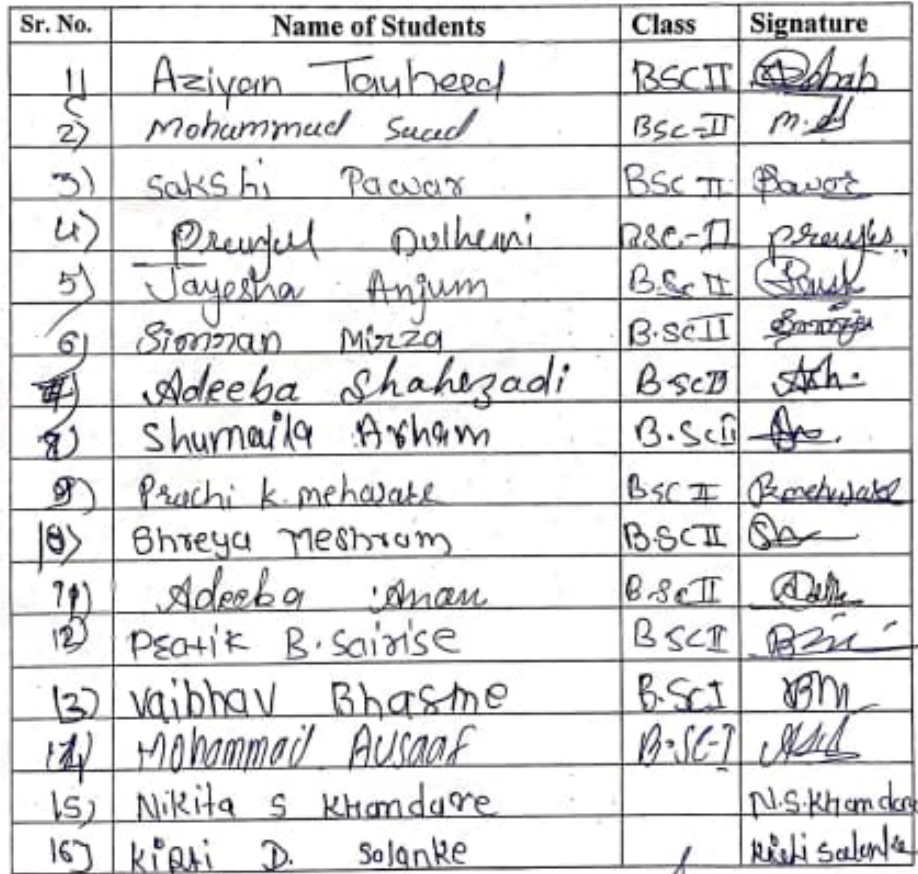 Sr. No. Name of Students Class Signature
1) Aziyan Tauheed BSC II
2) Mohammad Saad BSc-II M.
3) Sakshi Pawar BSC II Pawar
4) Dulhemi BSC-II
5) Jayesha Anjum B.Sc II
6) Simran Mirza B.SC II
7) Adeeba Shahezadi B.SC II Ash.
8) Shumaila Arham B.Sc II
9) Prachi K. mehasare BSC II
10) Shreya Meshram B.SC II
11) Adeeba Anam B.Sc II
12) Pratik B. Sairise B SC II
13) Vaibhav Bhasme B.SC I BM
14) Mohammad Ausaaf B.SC-I
15) Nikita S Khandare N.S.Khandare
16) Kirti D. Solanke Kirti Solanke